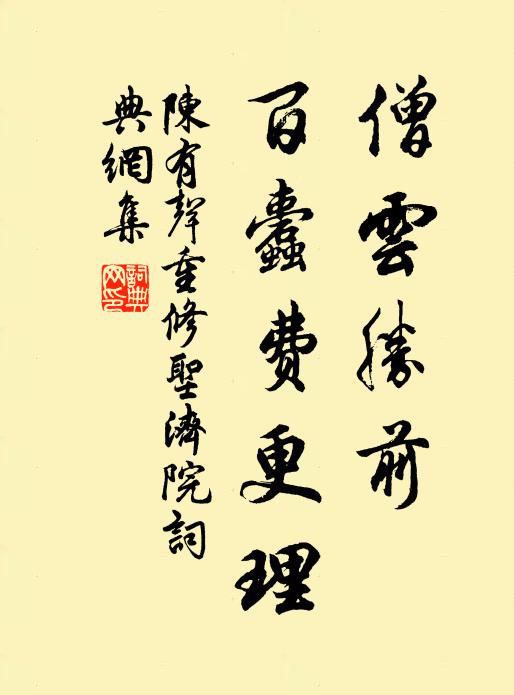 僧雲勝前
百蠹費更理
陳有聲重修聖濟院詞
典網集
詞典
网印